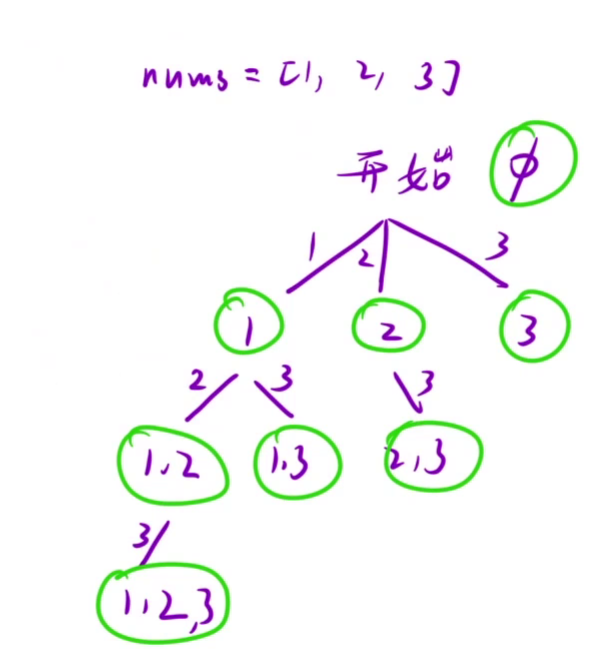 nums = [1, 2, 3]
开始 ϕ
1 2 3
1 2 3
2 3 3
1,2 1,3 2,3
3
1,2,3